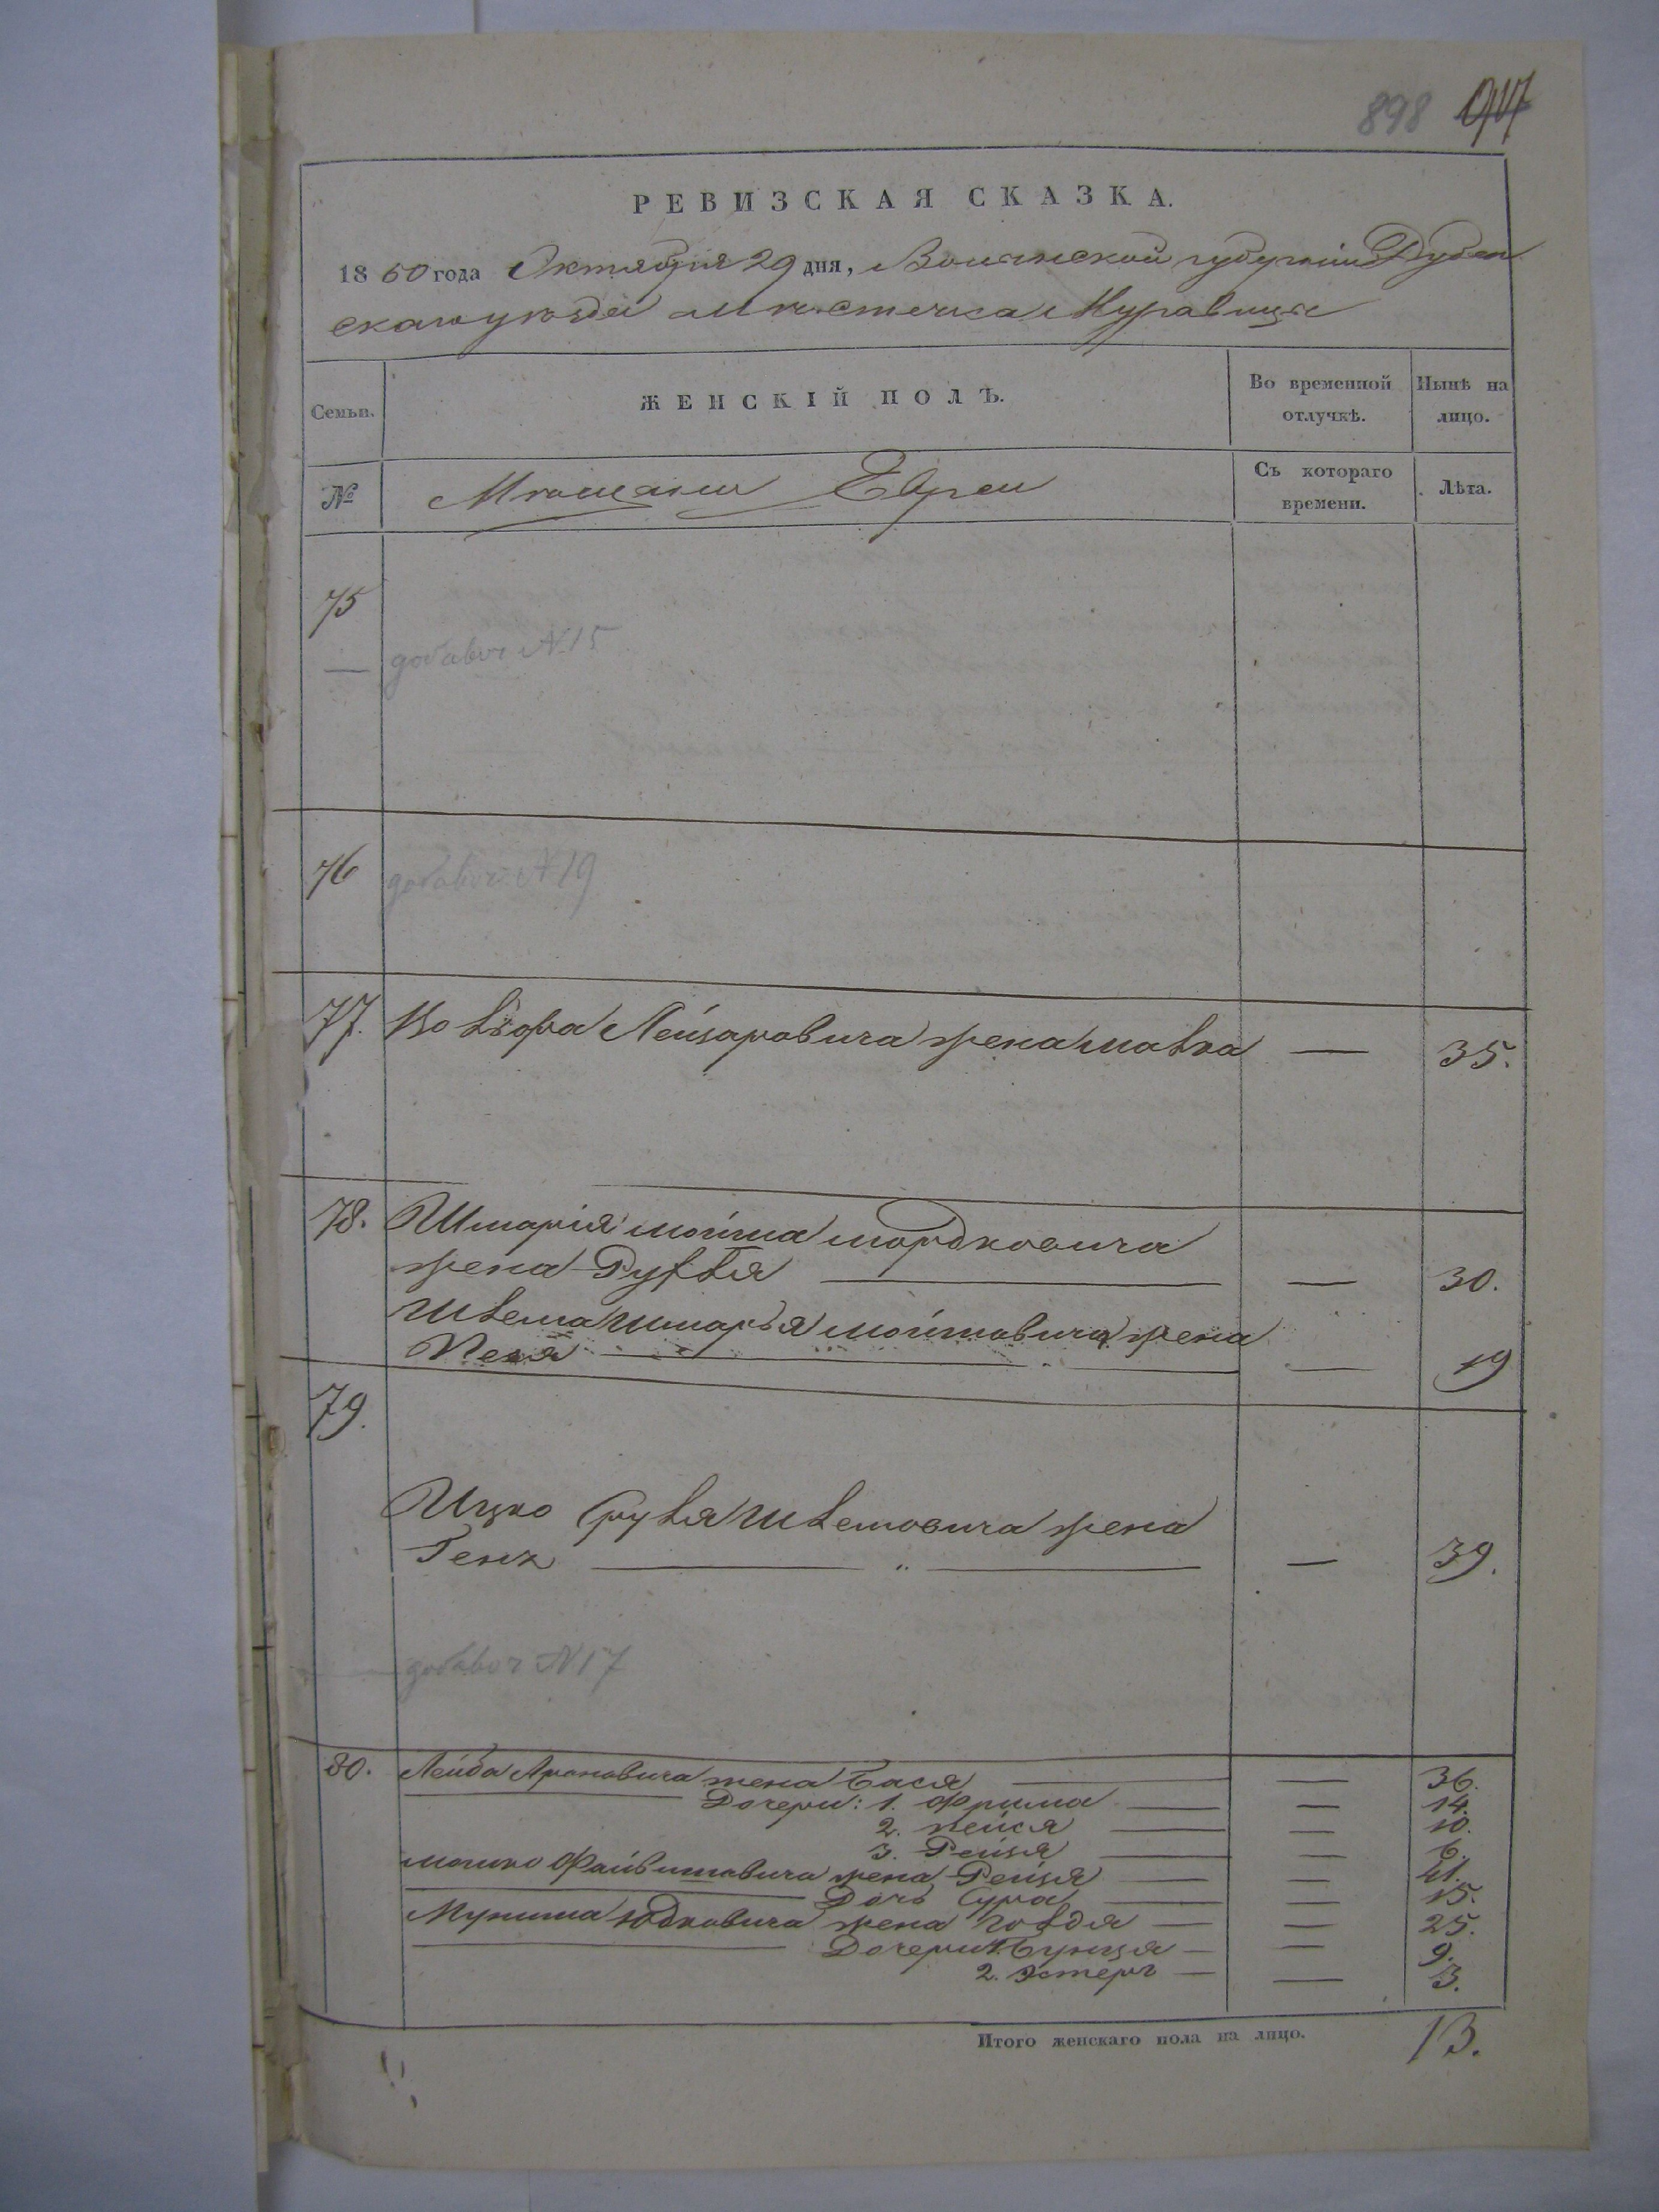 898
РЕВИЗСКАЯ СКАЗКА.
1850 года Октября 29 дня, Волынской губерніи Дубен
скаго уѣзда мѣстечка Муравицы
Семьи.
ЖЕНСКІЙ ПОЛЪ.
Во временной отлучкѣ.
Нынѣ на лицо.
№
Мѣщане Евреи
Съ котораго времени.
Лѣта.
75
добавоч N 15
76
добавоч N 19
77. Вольфа Лейзаровича жена Малка — 35.
78. Шмарія Мойша Мордковича
жена Рухля — 30.
Шлема Шмарья Мойшовича жена
Песя — 19
79.
Ицко Сруля Шлемовича жена
Геня — 39.
добавоч N 17
80. Лейба Ароновича жена Бася — 36.
Дочери: 1. Фрима — 14.
2. Кейся — 10.
3. Рейзя — 6.
Мошко Файвишовича жена Рейзя — 41.
Дочь Сура — 15.
юдковича жена Голдя — 25.
Дочери 1. Бунця — 9.
2. Эстеръ — 3.
Итого женскаго пола на лицо. 13.